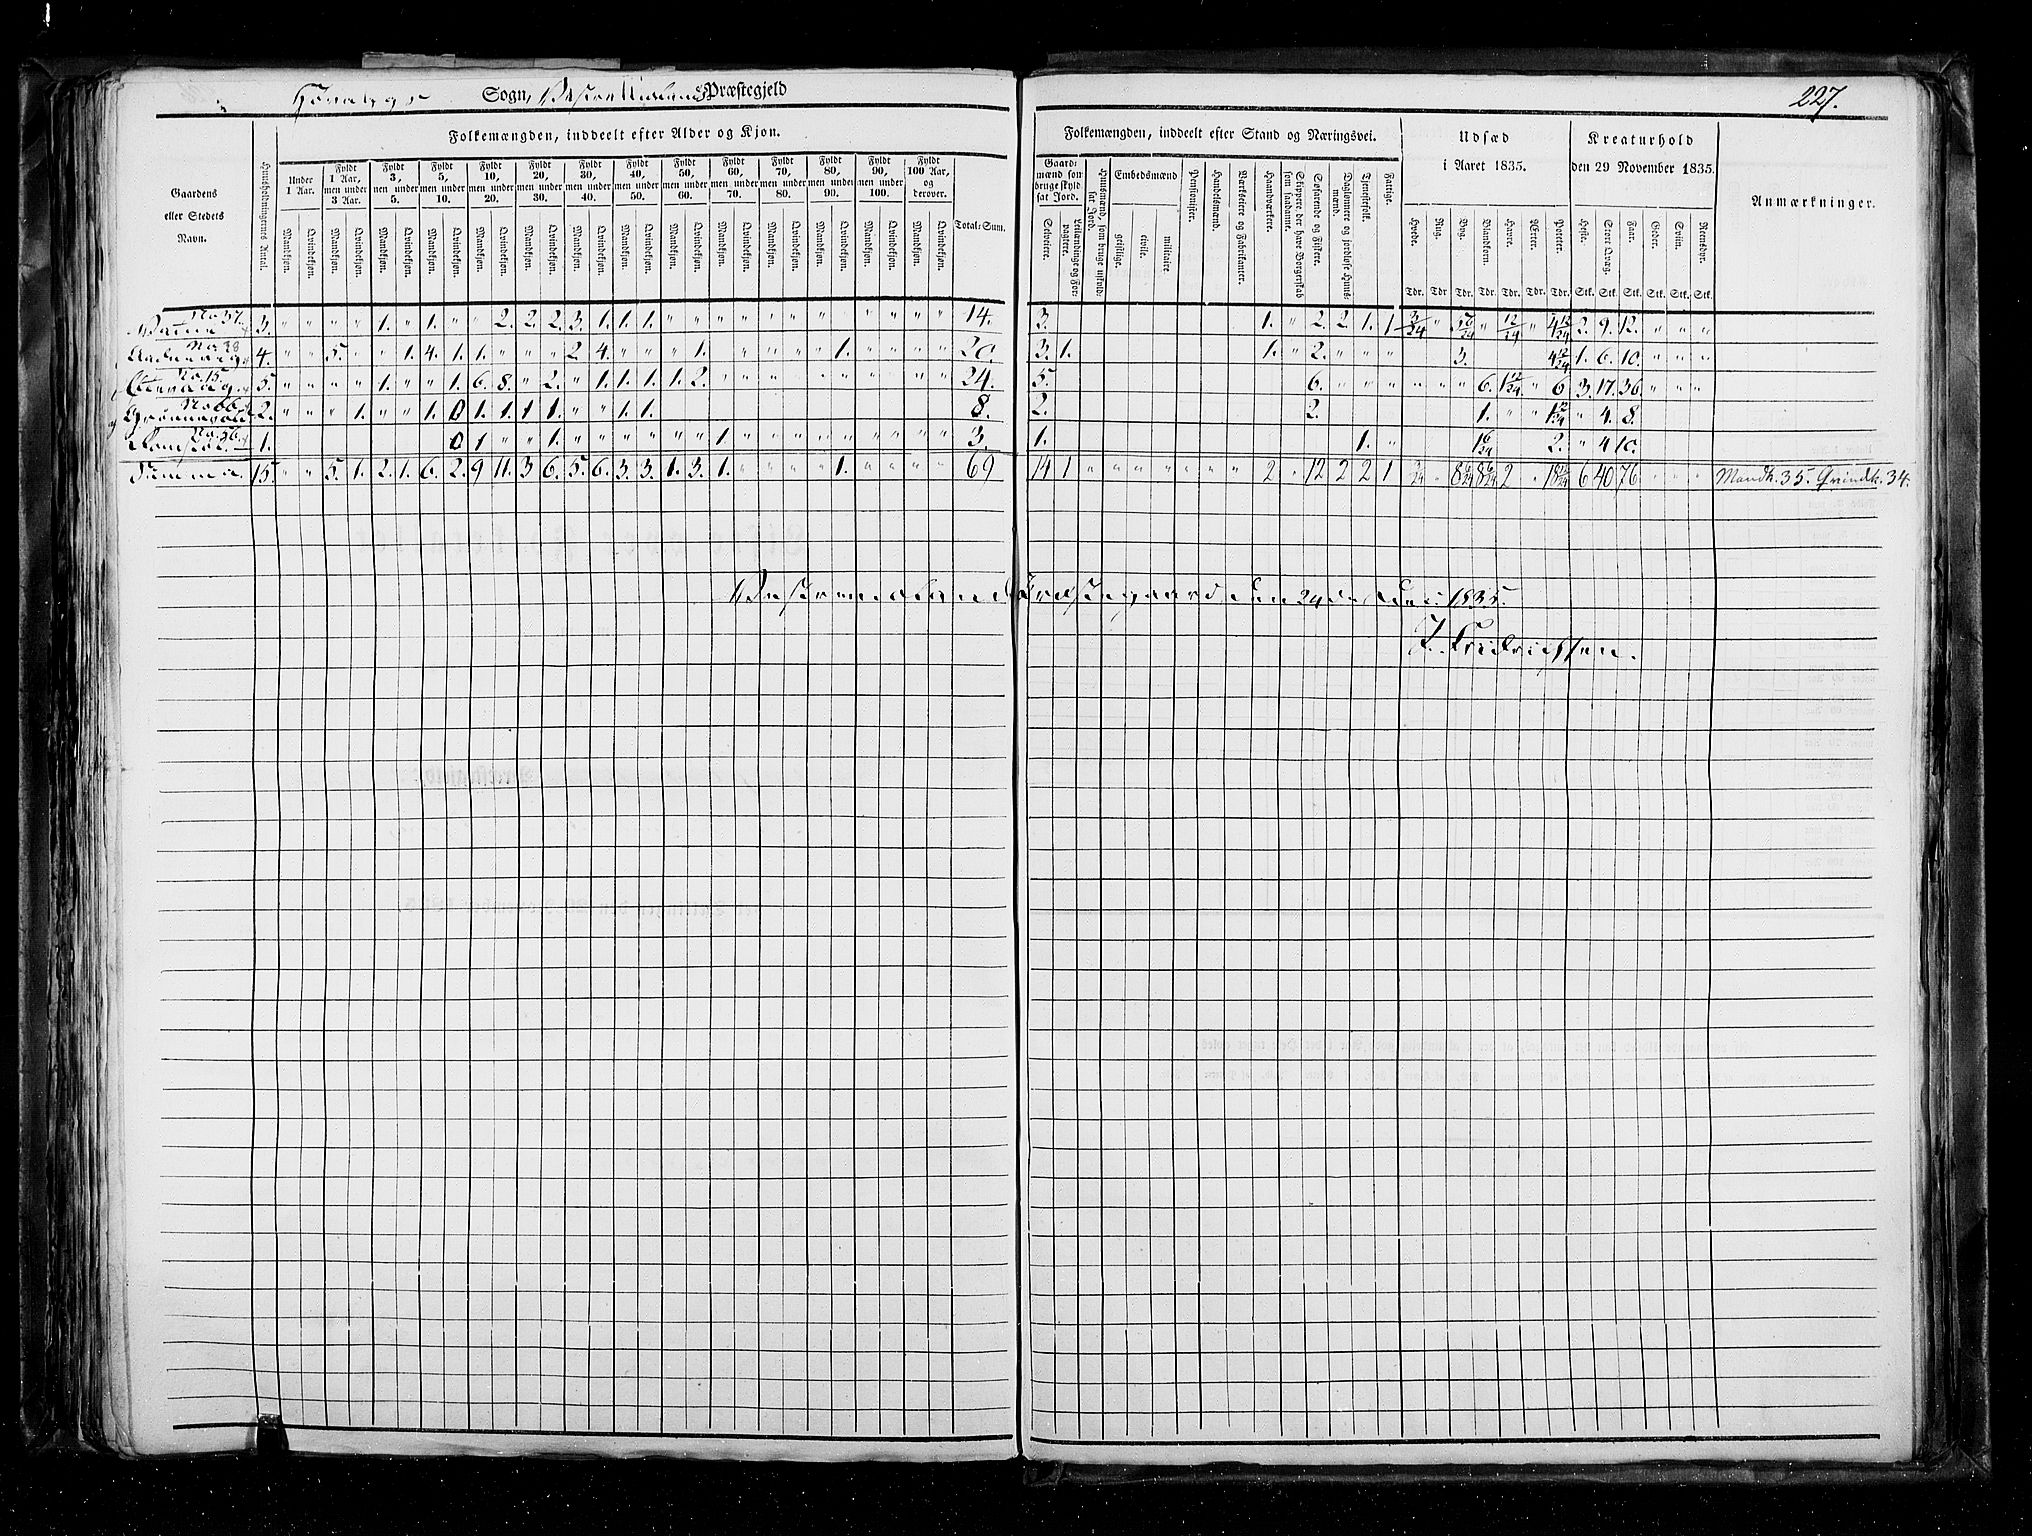 227.
Sogn, Præstegjeld
Folkemængden, inddeelt efter Alder og Kjøn.
Folkemængden, inddeelt efter Stand og Næringsvei.
Udsæd
i Aaret 1835.
Kreaturhold
den 29 November 1835.
Anmærkninger.
Gaardens
eller Stedets
Navn.
Huusholdningernes Antal.
Under
1 Aar.
Fyldt
1 Aar,
men under
3 Aar.
Fyldt
3,
men under
5.
Fyldt
5,
men under
10.
Fyldt
10,
men under
20.
Fyldt
20,
men under
30.
Fyldt
30,
men under
40.
Fyldt
40,
men under
50.
Fyldt
50,
men under
60.
Fyldt
60,
men under
70.
Fyldt
70,
men under
80.
Fyldt
80,
men under
90.
Fyldt
90,
men under
100.
Fyldt
100 Aar,
og
derover.
Mandkjøn. Qvindekjøn. Mandkjøn. Qvindekjøn. Mandkjøn. Qvindekjøn. Mandkjøn. Qvindekjøn. Mandkjøn. Qvindekjøn. Mandkjøn. Qvindekjøn. Mandkjøn. Qvindekjøn. Mandkjøn. Qvindekjøn. Mandkjøn. Qvindekjøn. Mandkjøn. Qvindekjøn. Mandkjøn. Qvindekjøn. Mandkjøn. Qvindekjøn. Mandkjøn. Qvindekjøn. Mandkjøn. Qvindekjøn.
Total-Sum.
Gaard-
mænd som
bruge skyld-
sat Jord.
Selveiere.
Leilændinge og For-
pagtere.
Huusmænd, som bruge uskyld-
sat Jord.
Embedsmænd
geistlige.
civile.
militaire.
Pensionister.
Handelsmænd.
Værkseiere og Fabrikanter.
Haandværkere.
Skippere, der have Borgerskab
som saadanne.
Søfarende og Fiskere.
Daglønnere og jordløse Huus-
mænd.
Tjenestefolk.
Fattige.
Hvede. Rug. Byg. Blandkorn. Havre. Erter. Poteter.
Tdr. Tdr Tdr. Tdr. Tdr. Tdr. Tdr.
Heste. Stort Qvæg. Faar. Geder. Sviin. Reensdyr.
Stk. Stk. Stk. Stk. Stk. Stk.
No 37. 3. " " " " 1. " 1. " " 2. 2. 2. 3. 1. 1. 1. " " " " " " " " " " " " 14. 3. 1. " 2. 2. 1. 1 3/24 " " 12/24 " 4 12/24 2. 9. 12. " " "
4. " " 5. " " 1. 4. 1. 1. " " " 2. 4. " " " 1. " " " " " 1. " " " " 20. 3. 1. 1. " 2. " " " 3. 4 12/24 1. 6. 10. " " "
No. 15. 5. " " " " 1. " " 1. 6. 8. " 2. " 1. 1. 1. 1. 2. " " " " " " " " " " 24. 5. 6. " " " " " " 6. 1 12/24 " 6 3. 17. 36. " " "
No 66. 2. " " " 1. " " 1. 0 1. 1. 1 1. " " 1. 1. 8. 2. 2. 1. " " 1 12/24 " 4. 8.
No. 56. 1. 0 1 " " 1. " " " " " " 1. " " " " " " " " " 3. 1. 1. 1 6/24 2. " 4 10.
Summa. 15. " " 5. 1. 2. 1. 6. 2. 9 11. 3 6. 5. 6. 3. 3. 1. 3. 1. 1. " " " " 69 14 1 " " " " " " " 2 " 12 2 2 1 3/24 " 8 6/24 8 6/24 2 " 18 12/24 6 40 76 " " " Mandk. 35. Qvindk. 34.
den 29de Dec. 1835.
J. Fridrichsen.